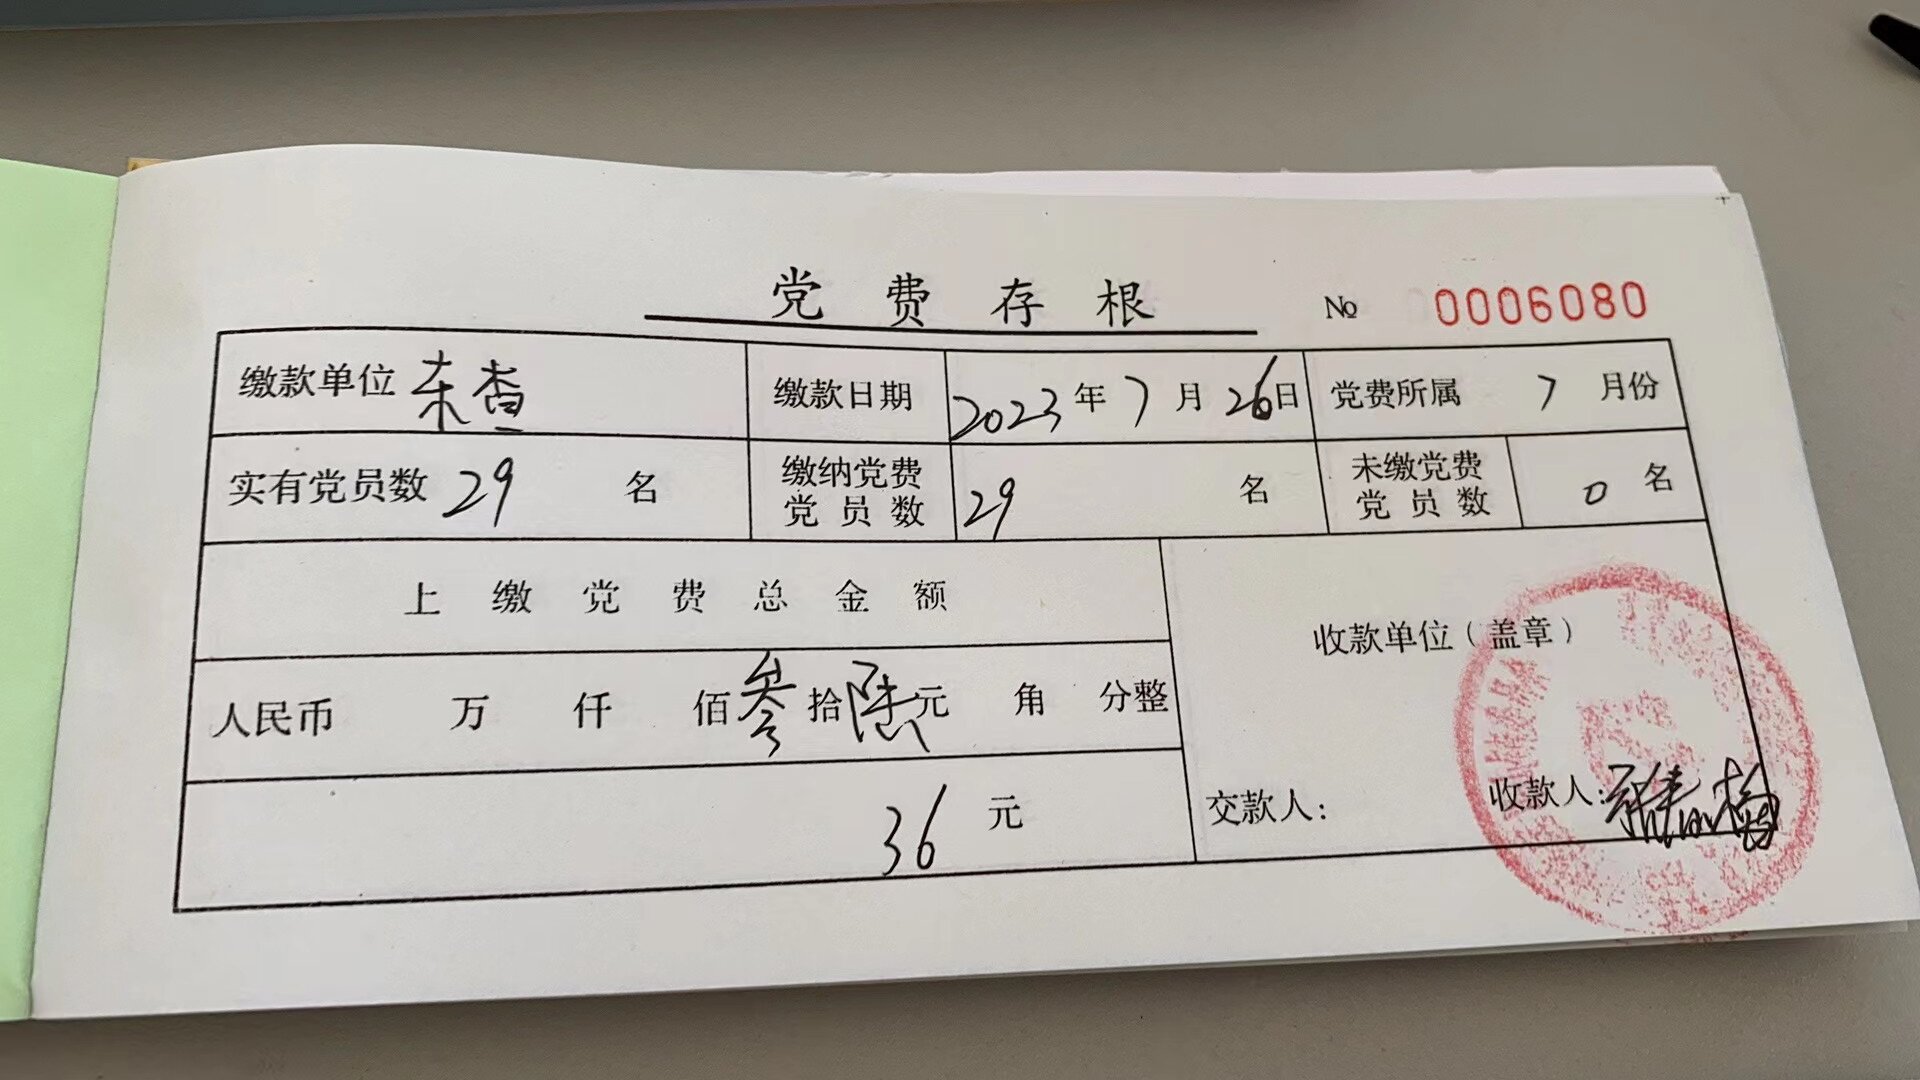 党费存根 № 0006080
缴款单位 东查 缴款日期 2023年7月26日 党费所属 7月份
实有党员数 29 名 缴纳党费党员数 29 名 未缴党费党员数 0 名
上缴党费总金额
收款单位（盖章）
人民币 万 仟 佰 叁拾陆元 角 分整
36元
交款人： 收款人：